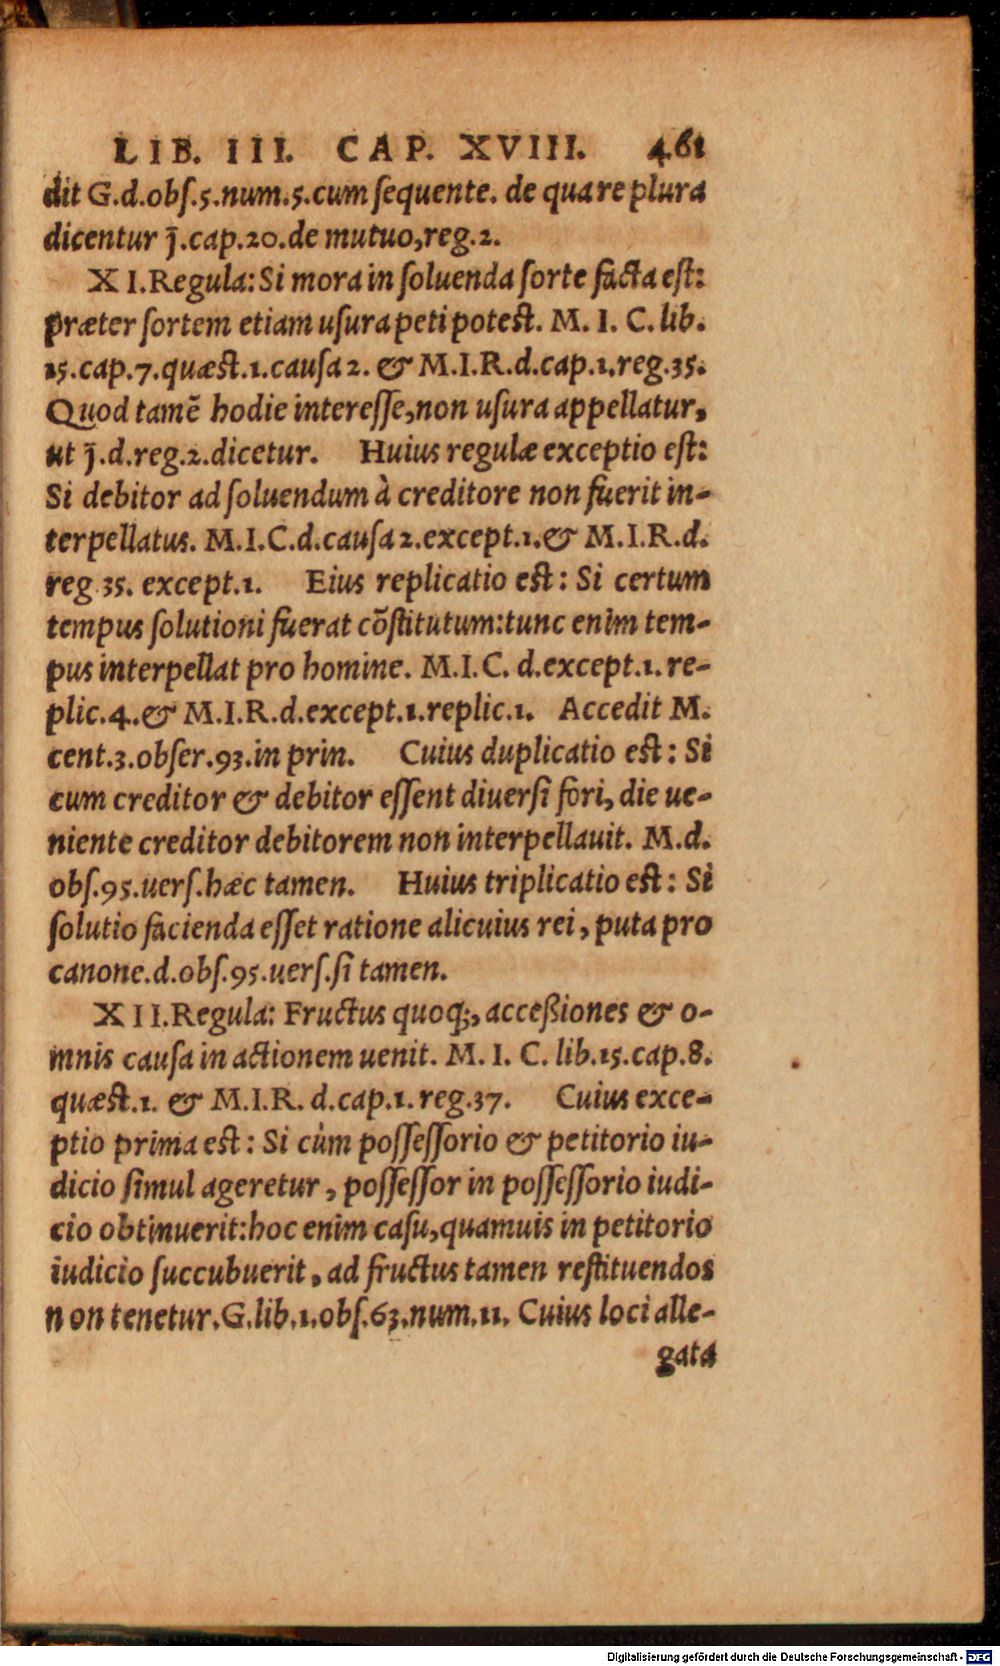 LIB. III. CAP. XVIII. 461
dit G.d.obſ.5.num.5.cum ſequente. de qua re plura
dicentur j̄.cap.20.de mutuo,reg.2.
XI.Regula:Si mora in ſoluenda ſorte facta eſt:
præter ſortem etiam uſura peti poteſt. M. I. C. lib.
15.cap.7.quæſt.1.cauſa 2. & M.I.R.d.cap.1.reg.35.
Quod tamē hodie intereſſe,non uſura appellatur,
ut j̄.d.reg.2.dicetur. Huius regulæ exceptio eſt:
Si debitor ad ſoluendum à creditore non fuerit in-
terpellatus. M.I.C.d.cauſa 2.except.1.& M.I.R.d.
reg.35. except.1. Eius replicatio eſt: Si certum
tempus ſolutioni fuerat cōſtitutum:tunc enim tem-
pus interpellat pro homine. M.I.C. d.except.1. re-
plic.4.& M.I.R.d.except.1.replic.1. Accedit M.
cent.3.obſer.93.in prin. Cuius duplicatio eſt: Si
cum creditor & debitor eſſent diuerſi fori, die ue-
niente creditor debitorem non interpellauit. M.d.
obſ.95.uerſ.hæc tamen. Huius triplicatio eſt: Si
ſolutio facienda eſſet ratione alicuius rei, puta pro
canone.d.obſ.95.uerſ.ſi tamen.
XII.Regula: Fructus quoq;, acceßiones & o-
mnis cauſa in actionem uenit. M. I. C. lib.15.cap.8.
quæſt.1. & M.I.R. d.cap.1.reg.37. Cuius exce-
ptio prima eſt: Si cùm poſſeſſorio & petitorio iu-
dicio ſimul ageretur, poſſeſſor in poſſeſſorio iudi-
cio obtinuerit:hoc enim caſu,quamuis in petitorio
iudicio ſuccubuerit, ad fructus tamen reſtituendos
non tenetur.G.lib.1.obſ.63.num.11. Cuius loci alle-
gata
Digitalisierung gefördert durch die Deutsche Forschungsgemeinschaft - DFG